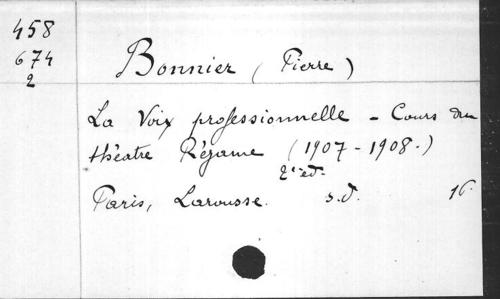 458
674
2
Bonnier (Pierre)
La Voix professionnelle - Cours du
théatre Réjame (1907-1908.)
2e éd.
Paris, Larousse. s.d. 16.